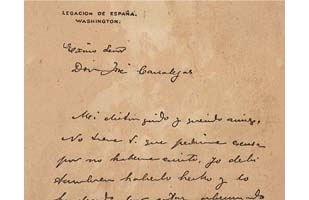 LEGACION DE ESPAÑA.
WASHINGTON.
Exmo Señor
Don José Canalejas
Mi distinguido y querido amigo,
No tiene V. que pedirme excusa
por no haberme escrito, yo debi
tambien haberlo hecho y lo
por estar abrumado